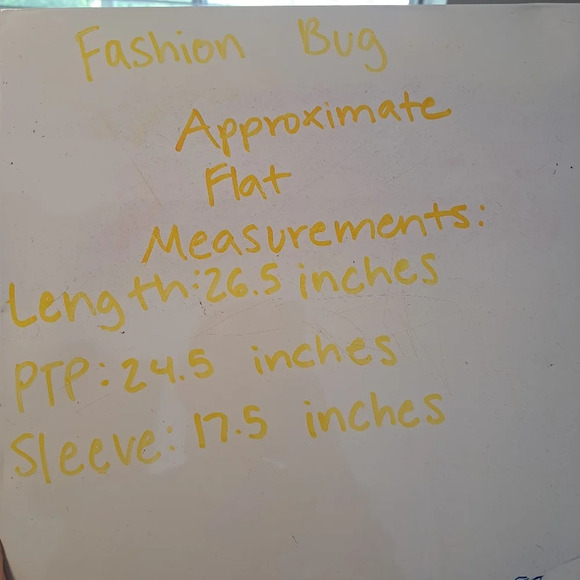 Fashion Bug
Approximate
Flat
Measurements:
Length: 26.5 inches
PTP: 24.5 inches
Sleeve: 17.5 inches